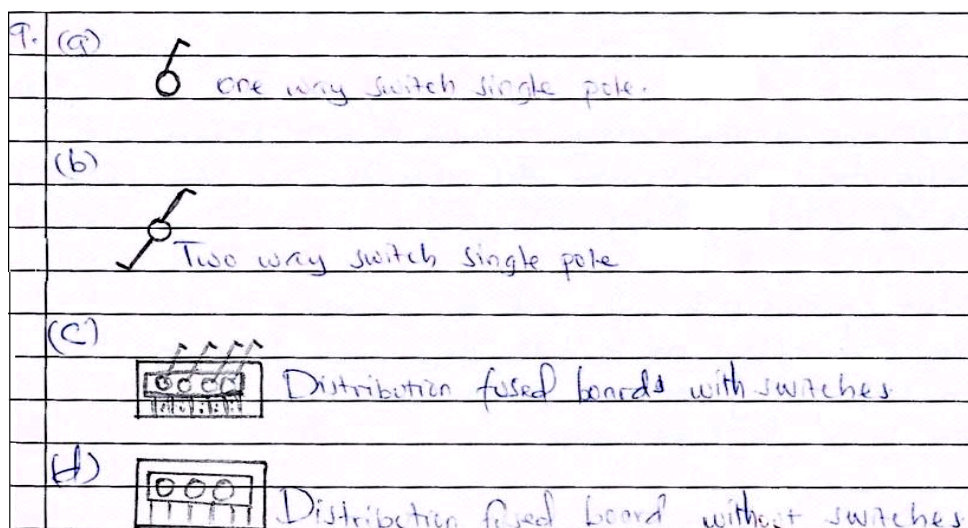 9. (a)
one way switch single pole.
(b)
Two way switch single pole
(c)
Distribution fused boards with switches
(d)
Distribution fused board without switches